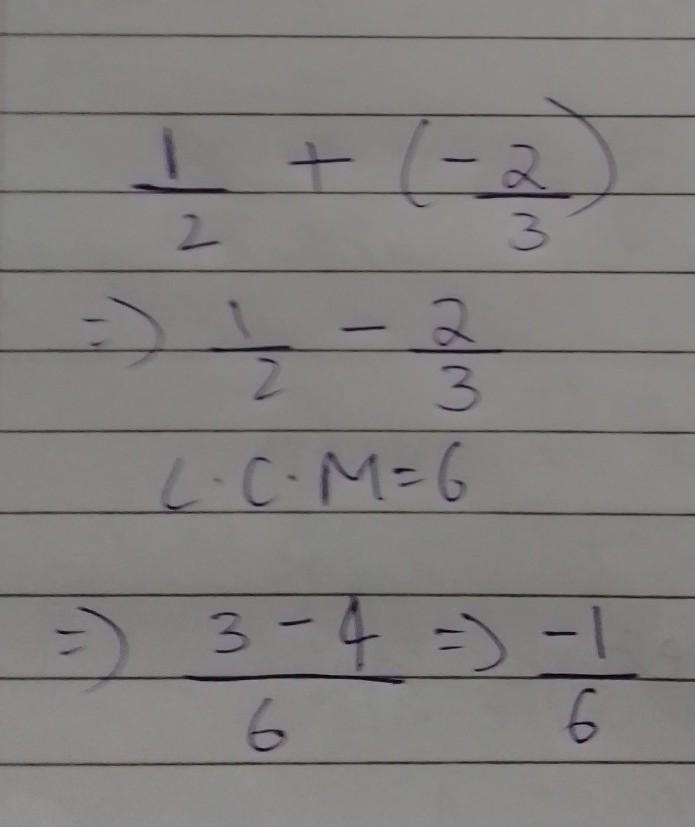 1/2 + (-2/3)
=> 1/2 - 2/3
L.C.M=6
=> 3-4/6 => -1/6